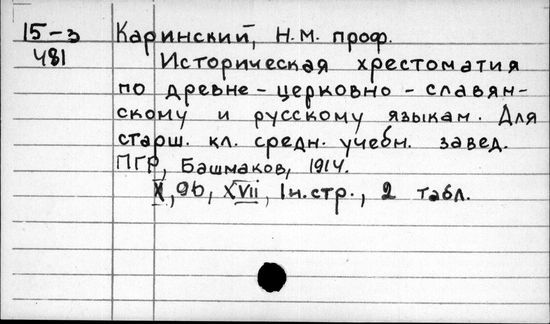 15-3 Каринский, Н.М. проф.
481 Историческая хрестоматия
по древне-церковно-славян-
скому и русскому языкам. Для
старш. кл. средн. учебн. завед.
ПГР, Башмаков, 1914.
X, 96, XVII, 1н.стр., 2 табл.